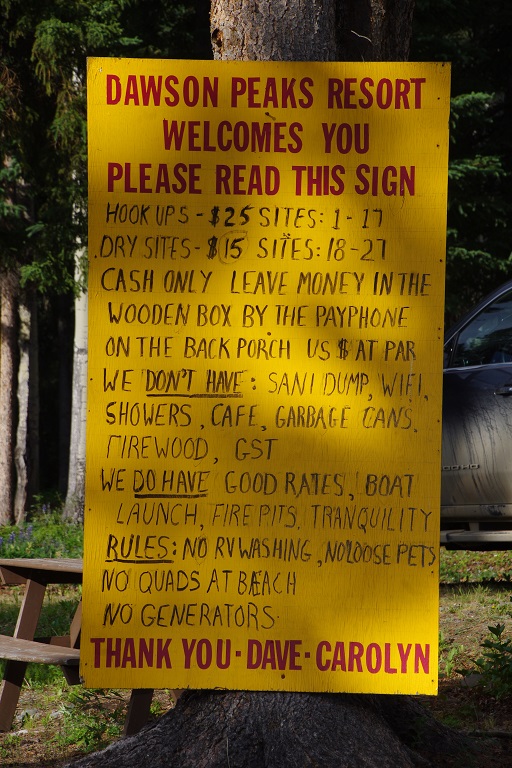 DAWSON PEAKS RESORT
WELCOMES YOU
PLEASE READ THIS SIGN
HOOK UPS - $25 SITES: 1-17
DRY SITES - $15 SITES: 18-27
CASH ONLY LEAVE MONEY IN THE
WOODEN BOX BY THE PAYPHONE
ON THE BACK PORCH US $ AT PAR
WE DON'T HAVE: SANI DUMP, WIFI,
SHOWERS, CAFE, GARBAGE CANS,
FIREWOOD, GST
WE DO HAVE GOOD RATES, BOAT
LAUNCH, FIRE PITS, TRANQUILITY
RULES: NO RV WASHING, NO LOOSE PETS
NO QUADS AT BEACH
NO GENERATORS
THANK YOU · DAVE · CAROLYN